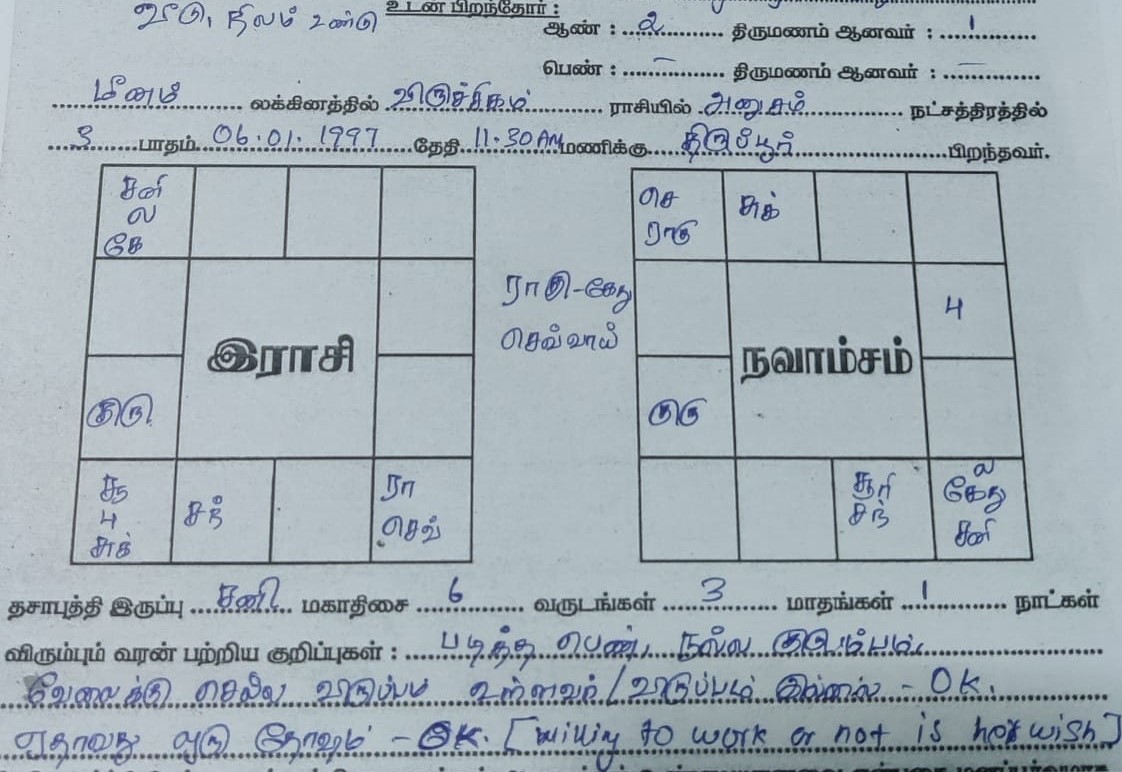 வீடு, நிலம் உண்டு உடன் பிறந்தோர் :
ஆண் : ...2... திருமணம் ஆனவர் : ...1...
பெண் : ...–... திருமணம் ஆனவர் : ...–...
மீனம் லக்கினத்தில் விருச்சிகம் ராசியில் அனுசம் நட்சத்திரத்தில்
3 பாதம் 06.01.1997 தேதி 11.30 AM மணிக்கு திருப்பூர் பிறந்தவர்.
சனி
ல
கே
குரு
சூ
பு
சுக்
சந்
ரா
செவ்
இராசி
ராகு-கேது
செவ்வாய்
செ
ராகு
சுக்
பு
குரு
சூரி
சந்
ல
கேது
சனி
நவாம்சம்
தசாபுத்தி இருப்பு சனி மகாதிசை 6 வருடங்கள் 3 மாதங்கள் 1 நாட்கள்
விரும்பும் வரன் பற்றிய குறிப்புகள் : படித்த பெண், நல்ல குடும்பம்,
வேலைக்கு செல்ல விருப்பம் உள்ளவர் / விருப்பம் இல்லை - OK.
ஏதாவது ஒரு தோஷம் - OK. [willing to work or not is her wish]